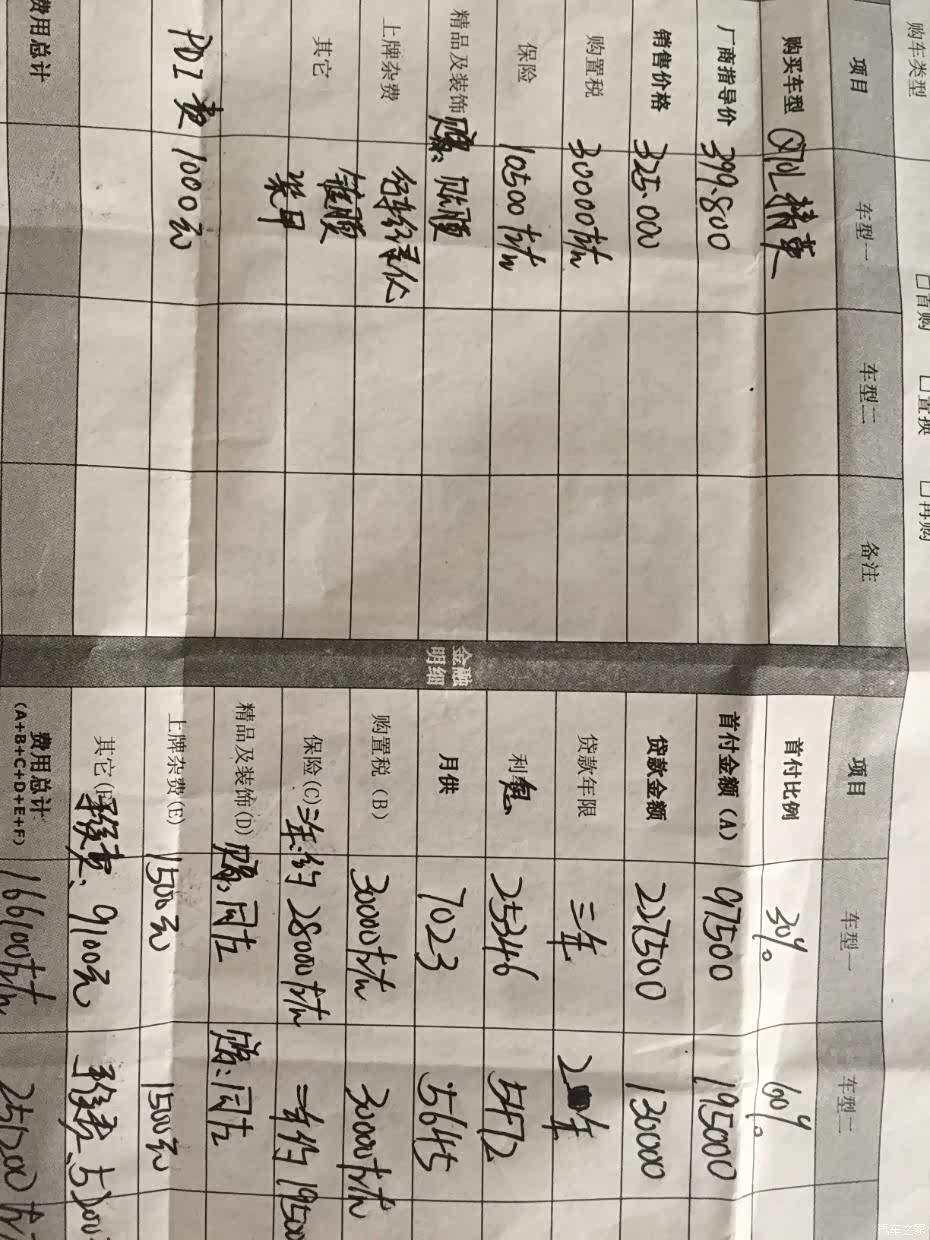 购车类型 □首购 □置换 □再购
项目 车型一 车型二 备注
购买车型
厂商指导价 399.800
销售价格 325.000
购置税 30000左右
保险 10500左右
精品及装饰 赠: 贴膜
上牌杂费 行车记录仪
其它 镀膜
装甲
PDI费 1000元
费用总计
金融
明细
项目 车型一 车型二
首付比例 30% 60%
首付金额(A) 97500 195000
贷款金额 227500 130000
贷款年限 三年 2年
利息 25346 5472
月供 7023 5645
购置税(B) 30000左右 30000左右
保险(C) 三年约28000左右 二年约19500
精品及装饰(D) 赠:同左 赠:同左
上牌杂费(E) 1500元 1500元
其它(F) 手续费、9100元 手续费、5200
费用总计
(A+B+C+D+E+F) 166100左右 251200左右
汽车之家